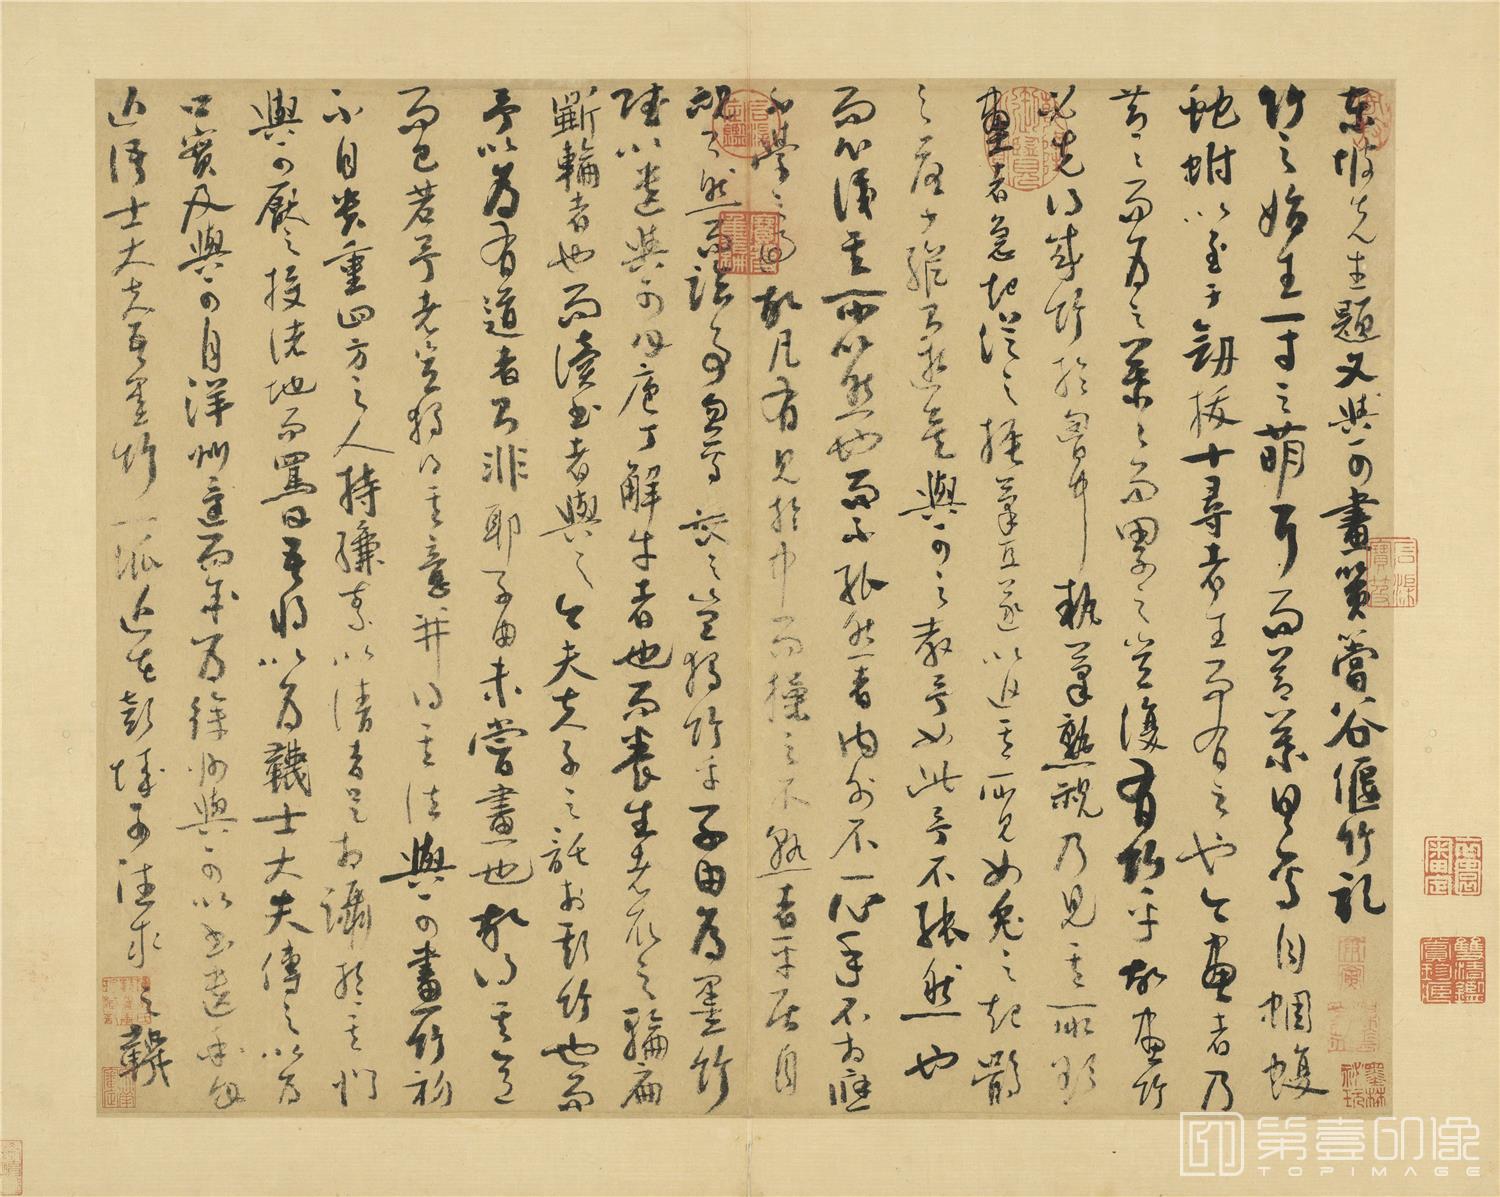 東坡先生題文與可畫篔簹谷偃竹記
竹之始生一寸之萌耳而節葉具焉自蜩蝮
蛇蚹以至于劒拔十尋者生而有之也今畫者乃
節節而為之葉葉而累之豈復有竹乎故畫竹
必先得成竹於胷中執筆熟視乃見其所欲
畫者急起從之振筆直遂以追其所見如兔之起鶻
之落少縱則逝矣與可之教予如此予不能然也
而心識其所以然也而不能然者內外不一心手不相應
不學之過也故凡有見於中而操之不熟者平居自
視了然而臨事忽焉喪之豈獨竹乎子由為墨竹
賦以遺與可曰庖丁解牛者也而養生者取之輪扁
斲輪者也而讀書者與之今夫夫子之託於斯竹也而
予以為有道者則非耶子由未嘗畫也故得其意
而已若予者豈獨得其意并得其法與可畫竹初
不自貴重四方之人持縑素以請者足相躡於其門
與可厭之投諸地而罵曰吾將以為韈士大夫傳之以為
口實及與可自洋州還而余為徐州與可以書遺余曰
近語士大夫吾墨竹一派近在彭城可往求之韈
第壹印像
TOPIMAGE